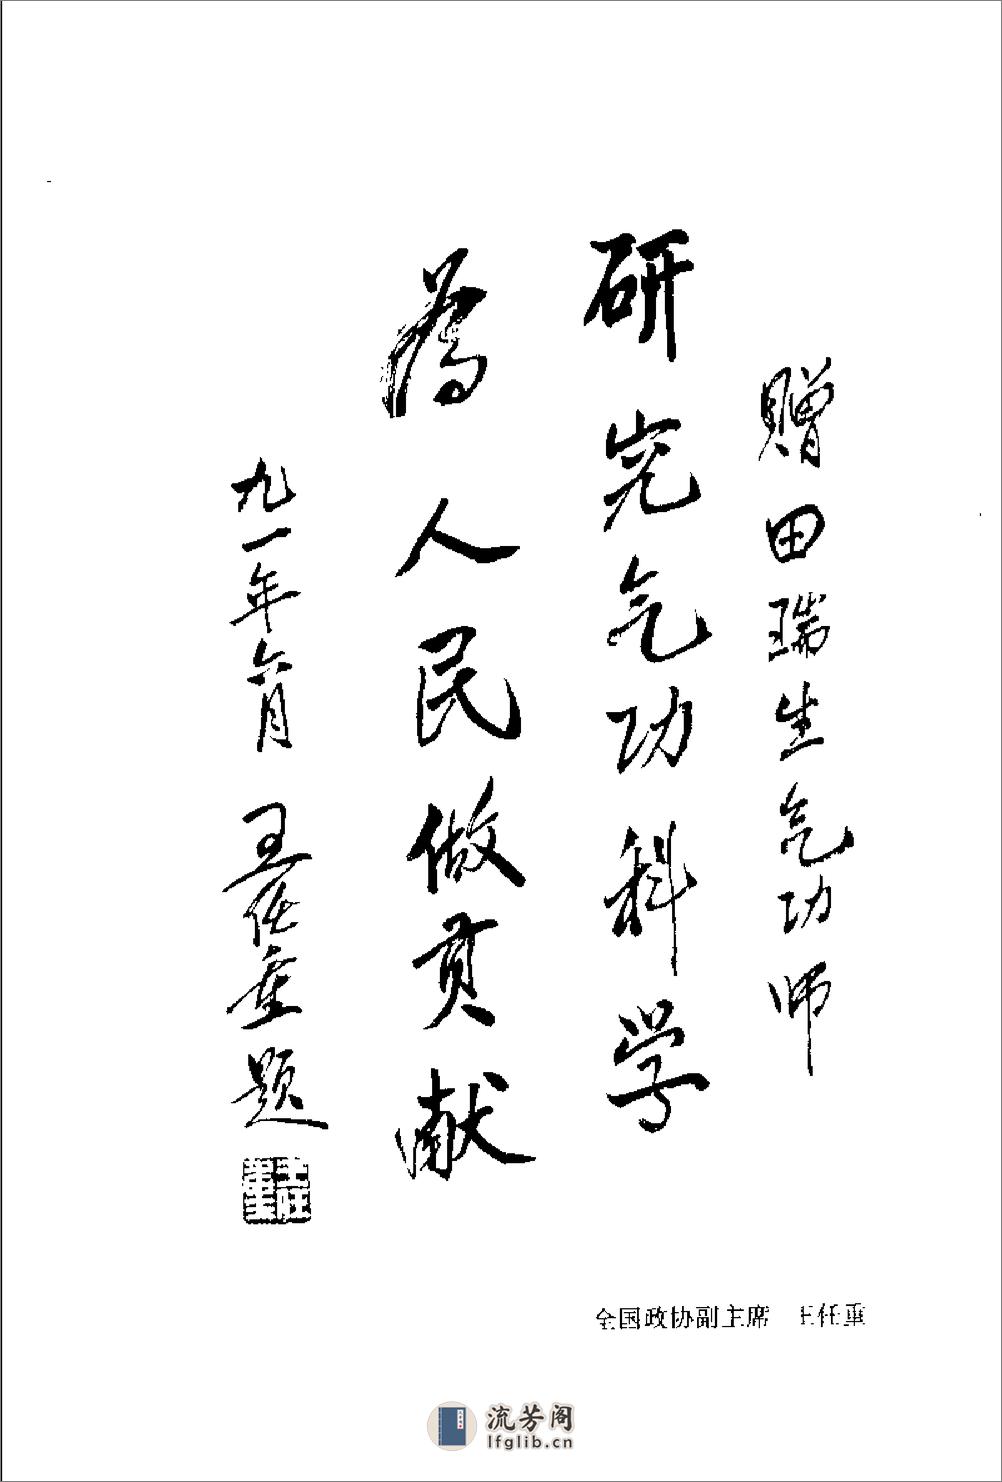 赠田瑞生气功师
研究气功科学
为人民做贡献
九一年六月 王任重题
王任重
全国政协副主席 王任重
流芳阁
lfglib.cn